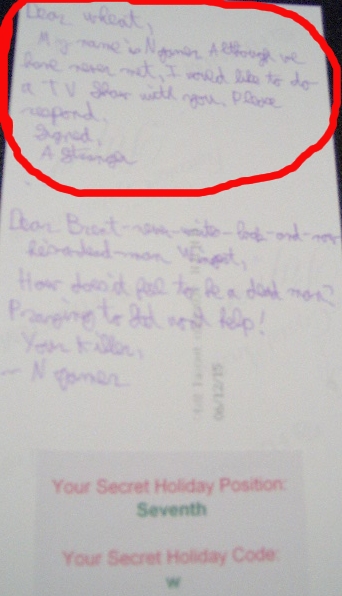 Dear wheat,
My name is N gamer Although we
have never met, I would like to do
a TV show with you. Please
respond.
Signed,
A Stranger
Dear Brent-never-writes-back-and-now-
he's-a-dead-man
How does'd feel to be a dead man?
to God won't help!
Your Killer,
~ N gamer
06/12/15
Your Secret Holiday Position:
Seventh
Your Secret Holiday Code:
w